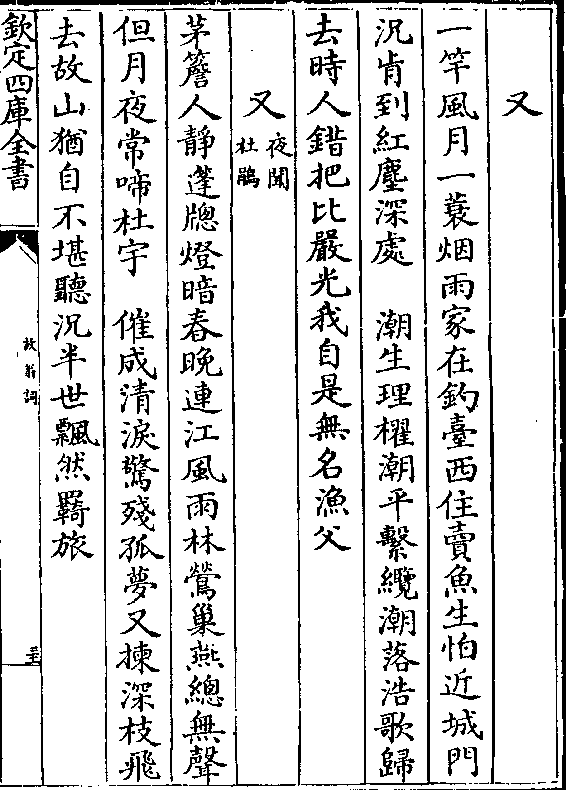 又
一竿風月一蓑烟雨家在釣臺西住賣魚生怕近城門
況肯到紅塵深處　潮生理櫂潮平繫纜潮落浩歌歸
去時人錯把比嚴光我自是無名漁父
又夜聞杜鵑
茅簷人靜蓬牕燈暗春晚連江風雨林鶯巢燕總無聲
但月夜常啼杜宇　催成清淚驚殘孤夢又揀深枝飛
去故山猶自不堪聽況半世飄然羇旅
欽定四庫全書
放翁詞